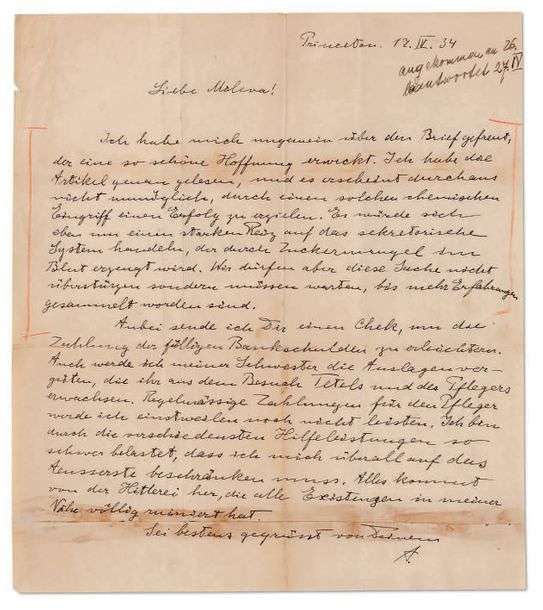 Princeton. 17. IV. 34
angekommen am 26.
beantwortet 27/IV
Liebe Mileva!
Ich habe mich ungemein über den Brief gefreut,
der eine so schöne Hoffnung erweckt. Ich habe die
Artikel genau gelesen, und es erscheint durchaus
nicht unmöglich, durch einen solchen chemischen
Eingriff einen Erfolg zu erzielen. Es würde sich
eben um einen starken Reiz auf das sekretorische
System handeln, der durch Zuckermangel im
Blut erzeugt wird. Wir dürfen aber diese Sache nicht
überstürzen sondern müssen warten, bis mehr Erfahrungen
gesammelt worden sind.
Anbei sende ich Dir einen Chek, um die
Zahlung der fälligen Bankschulden zu erleichtern.
Auch werde ich meiner Schwester die Auslagen ver-
güten, die ihr aus dem Besuch Tetels und des Pflegers
erwachsen. Regelmässige Zahlungen für den Pfleger
werde ich einstweilen noch nicht leisten. Ich bin
durch die verschiedensten Hilfeleistungen so
schwer belastet, dass ich mich überall auf das
Aeusserste beschränken muss. Alles kommt
von der Hitlerei her, die alle Existenzen in meiner
Nähe völlig ruiniert hat.
Sei bestens gegrüsst von Deinem
A.